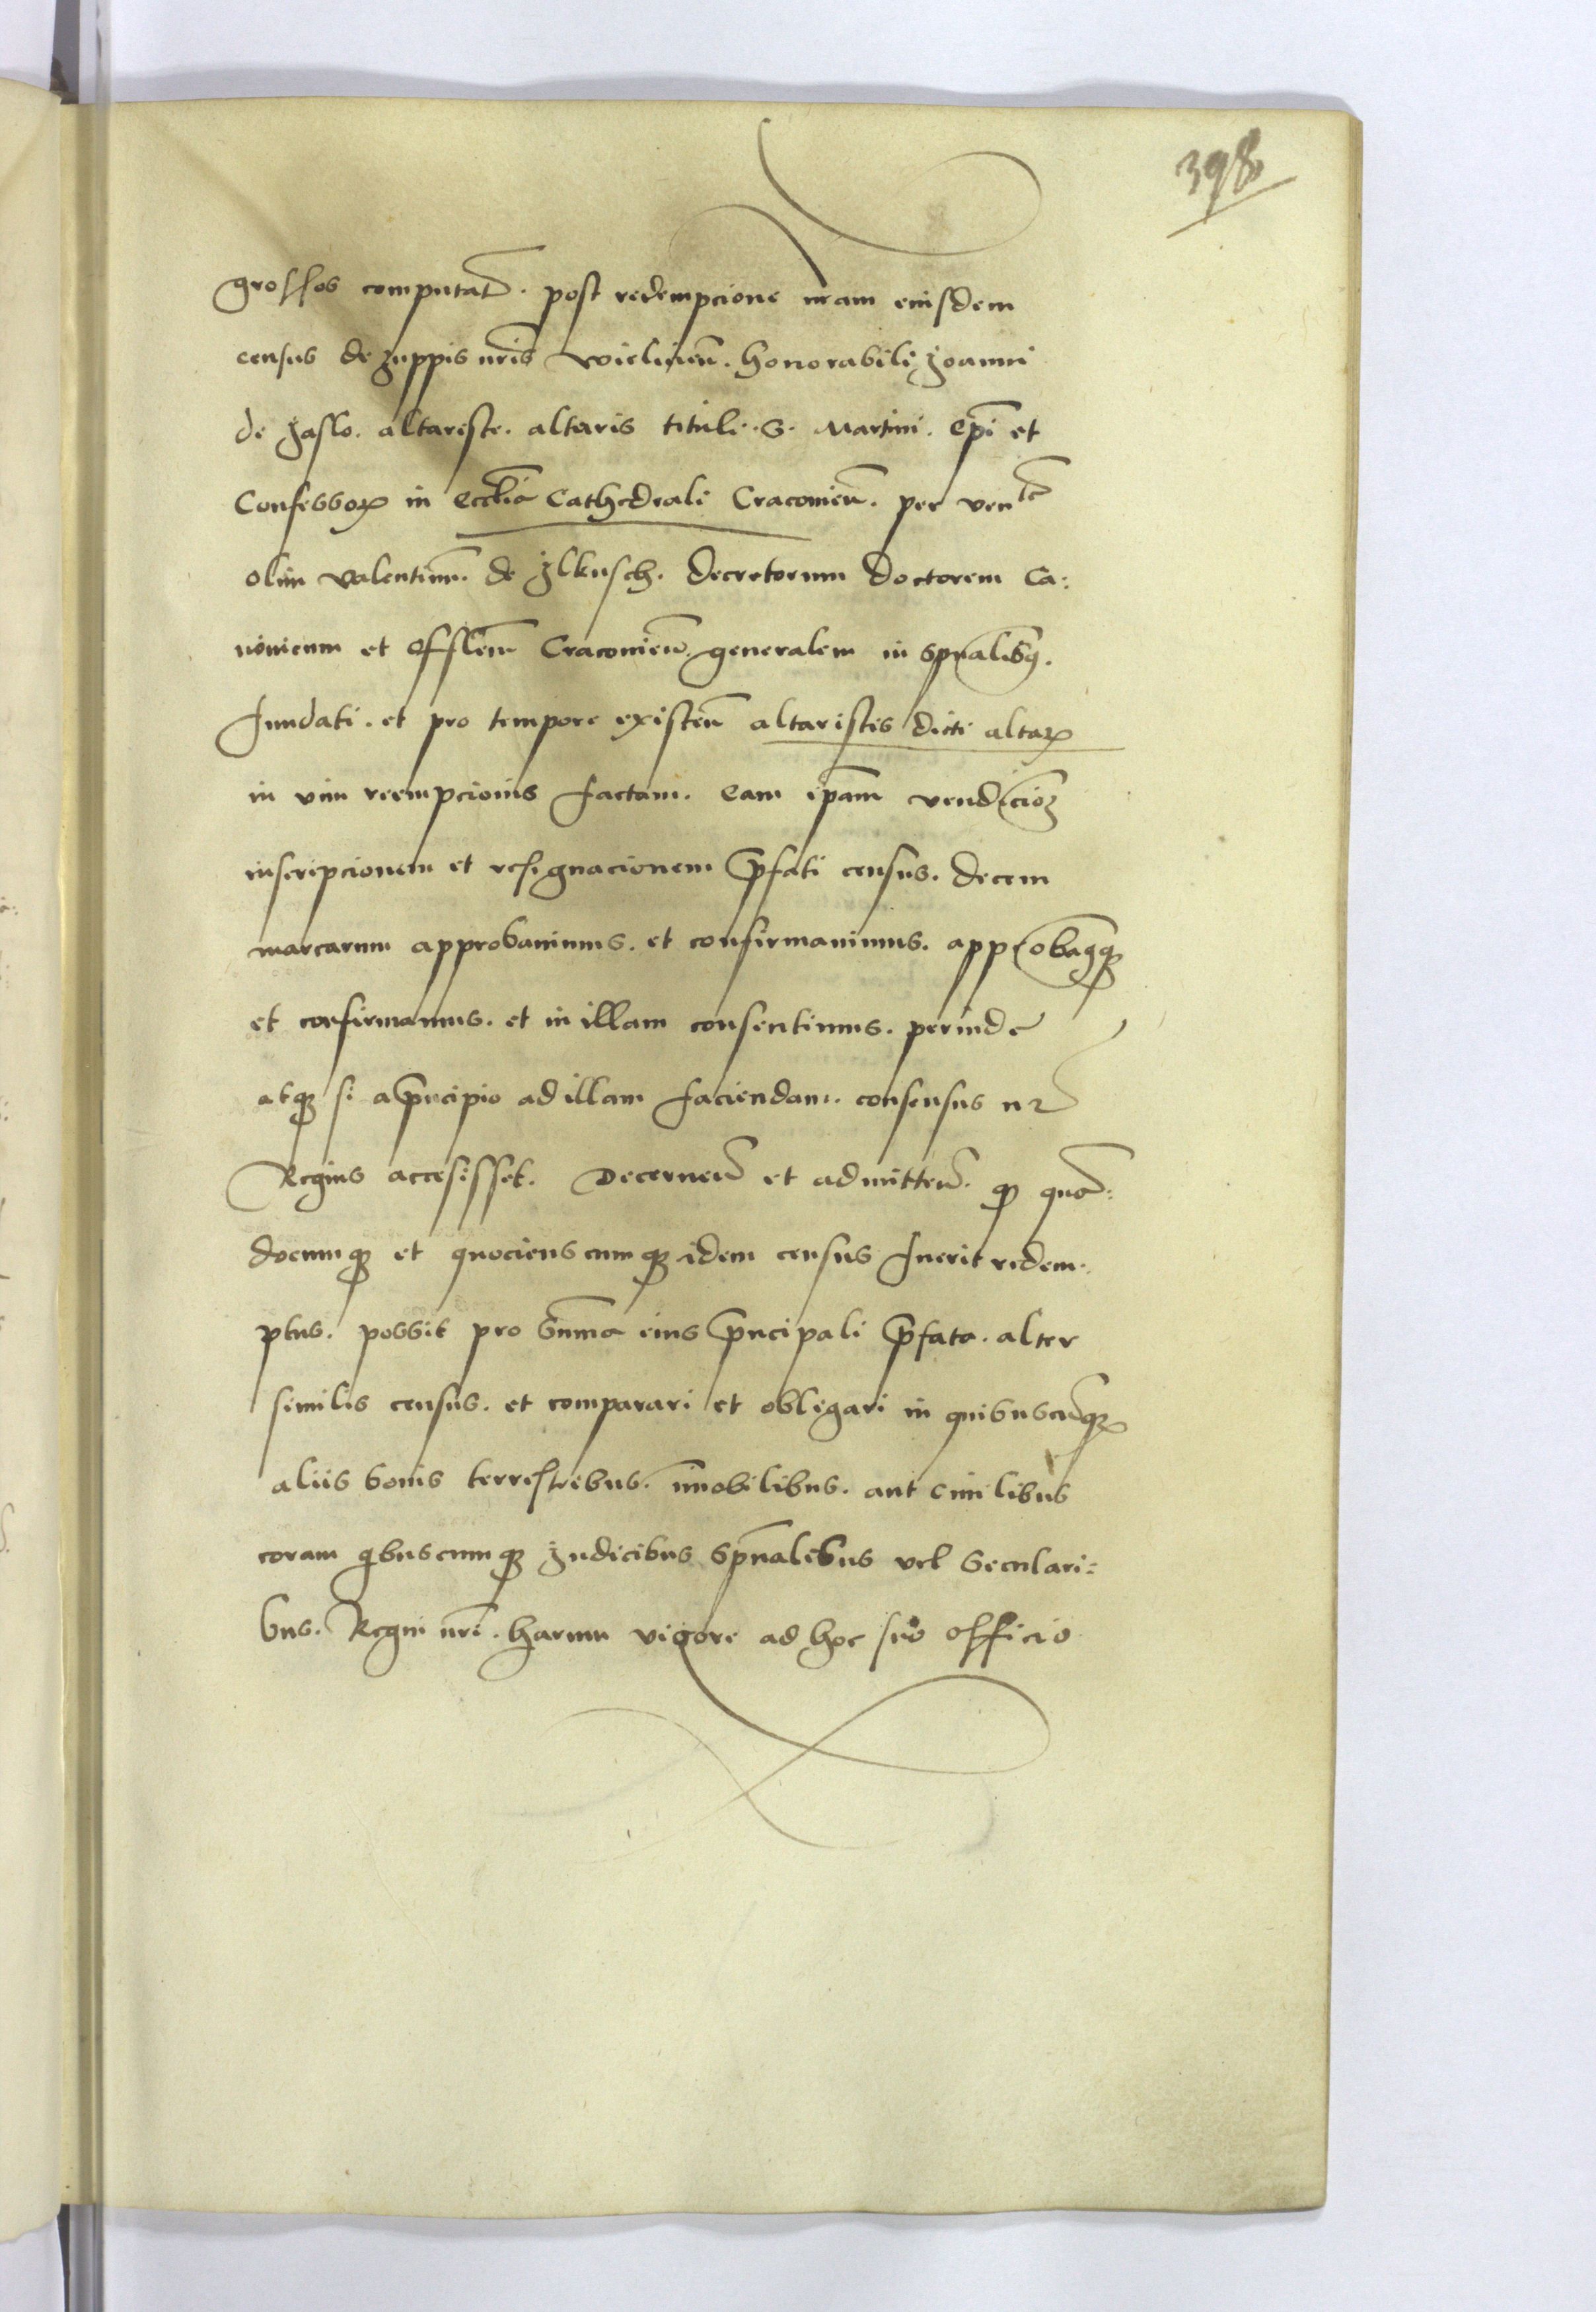 398
grossos computat̄. post redempcione nr̄am eiusdem
census de zuppis nr̄is Wielicieñ. honorabili Joanni
de Jaslo. altariste. altaris tituli. S. Martini. Ep̄i et
Confessoꝝ in Eccl̄ia Cathedrali Cracovieñ. per ven̄le
olim Valentinū. de Jlkusch. decretorum doctorem Ca:
nonicum et Offl̄em Cracovieñ. generalem in sp̄ualibꝯ.
fundati. et pro tempore existeñ altaristis dicti altaꝝ
in vim reempcionis factam. Eam ip̄am vendicioꝫ
inscripcionem et resignacionem p̄fati census. decem
marcarum approbavimus. et confirmavimus. approbamꝯqꝫ
et confirmamus. et in illam consentimus. perinde
atqꝫ si a p̄ncipio ad illam faciendam. consensus nr̄
Regius accesisset. Decerneñ et admitteñ. qꝫ quā:
documqꝫ et quocienscumqꝫ idem census fuerit redem:
ptus. possit pro sum̄a eius p̄ncipali p̄fata. alter
similis census. et comparari et obligari in quibuscūqꝫ
aliis bonis terrestribus. im̄obilibus. aut civilibus
coram qibuscumqꝫ Judicibus sp̄ualibus vel secular:
ibus. Regni nr̄i. harum vigore ad hoc suo officio